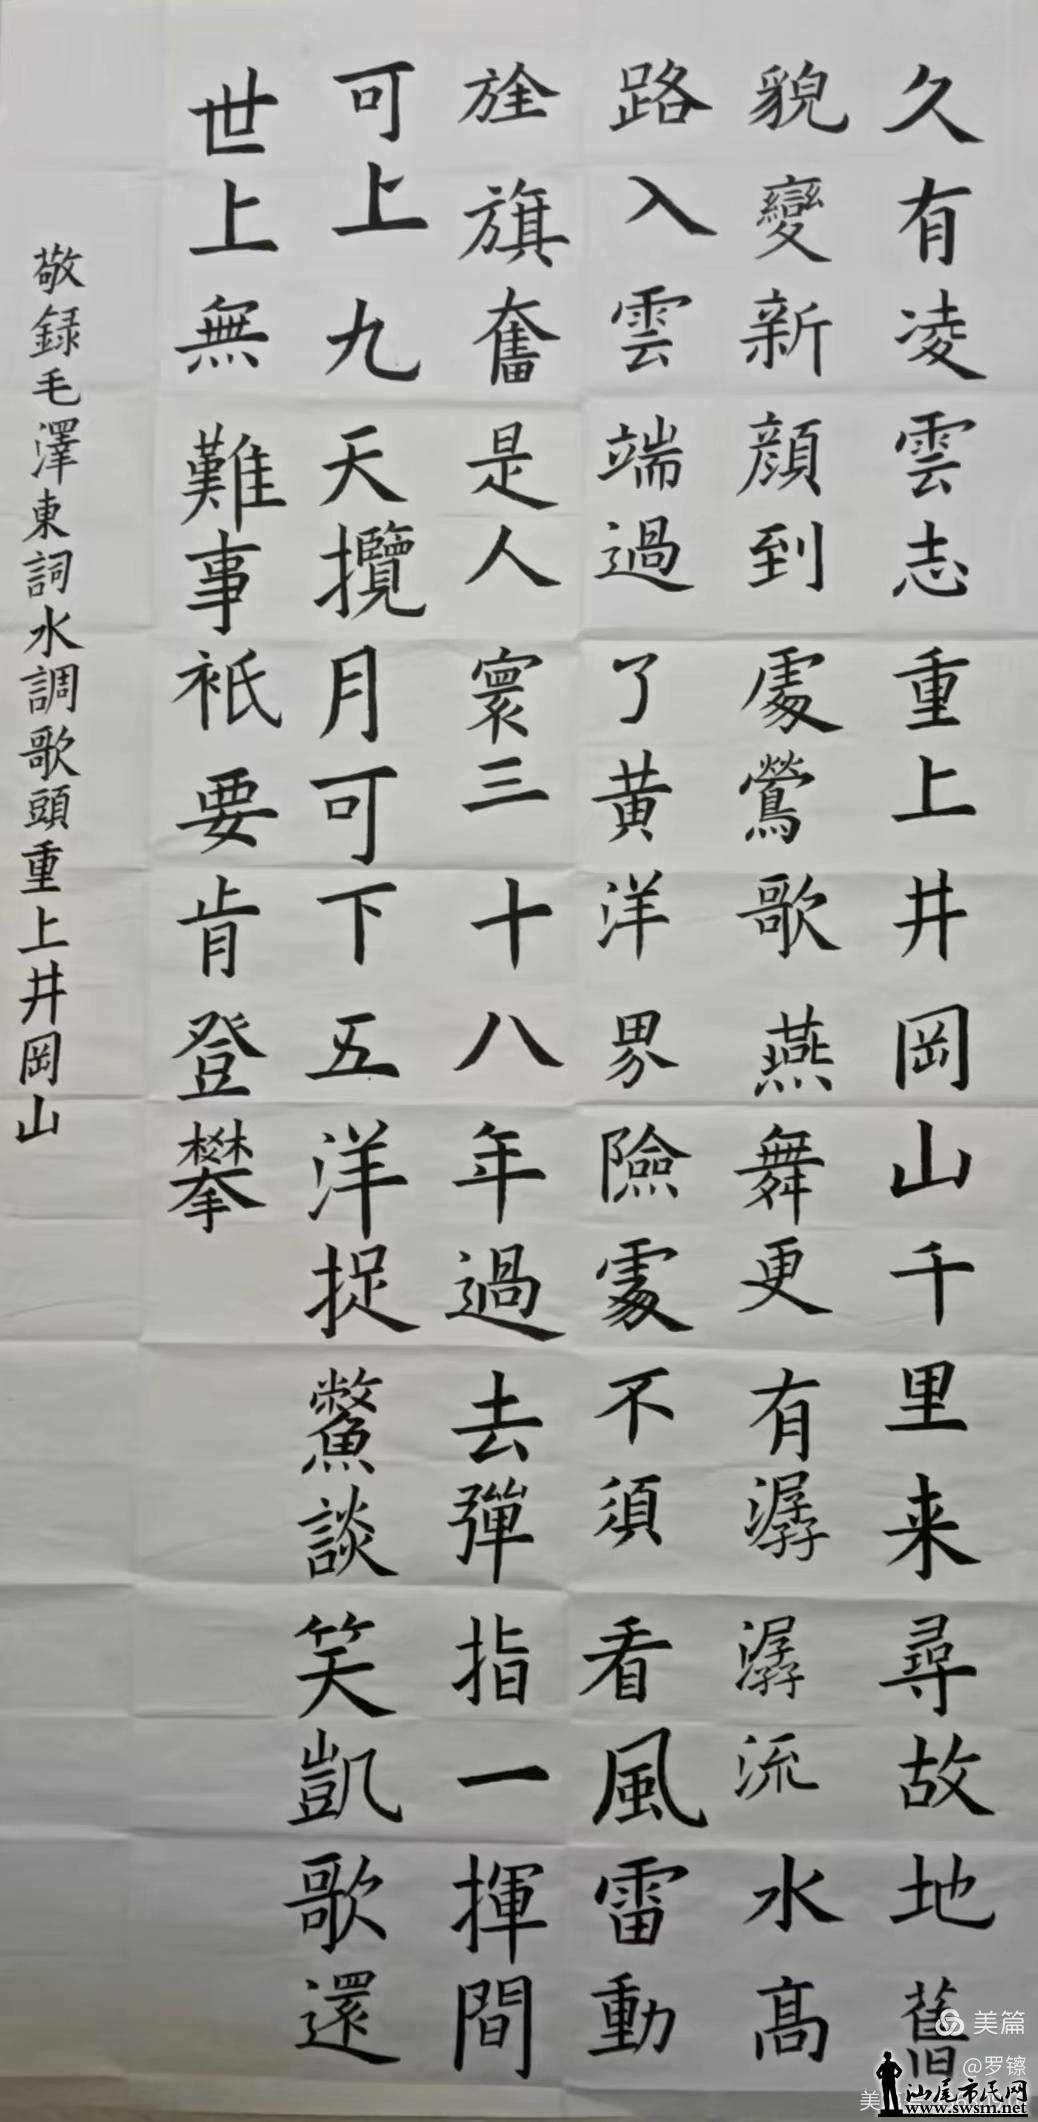 久有凌雲志重上井岡山千里来尋故地舊
貌變新顔到處鶯歌燕舞更有潺潺流水高
路入雲端過了黄洋界險處不須看風雷動
旌旗奮是人寰三十八年過去彈指一揮間
可上九天攬月可下五洋捉鱉談笑凱歌還
世上無難事衹要肯登攀
敬録毛澤東詞水調歌頭重上井岡山
美篇
@罗镲
汕尾市民网
www.swsm.net